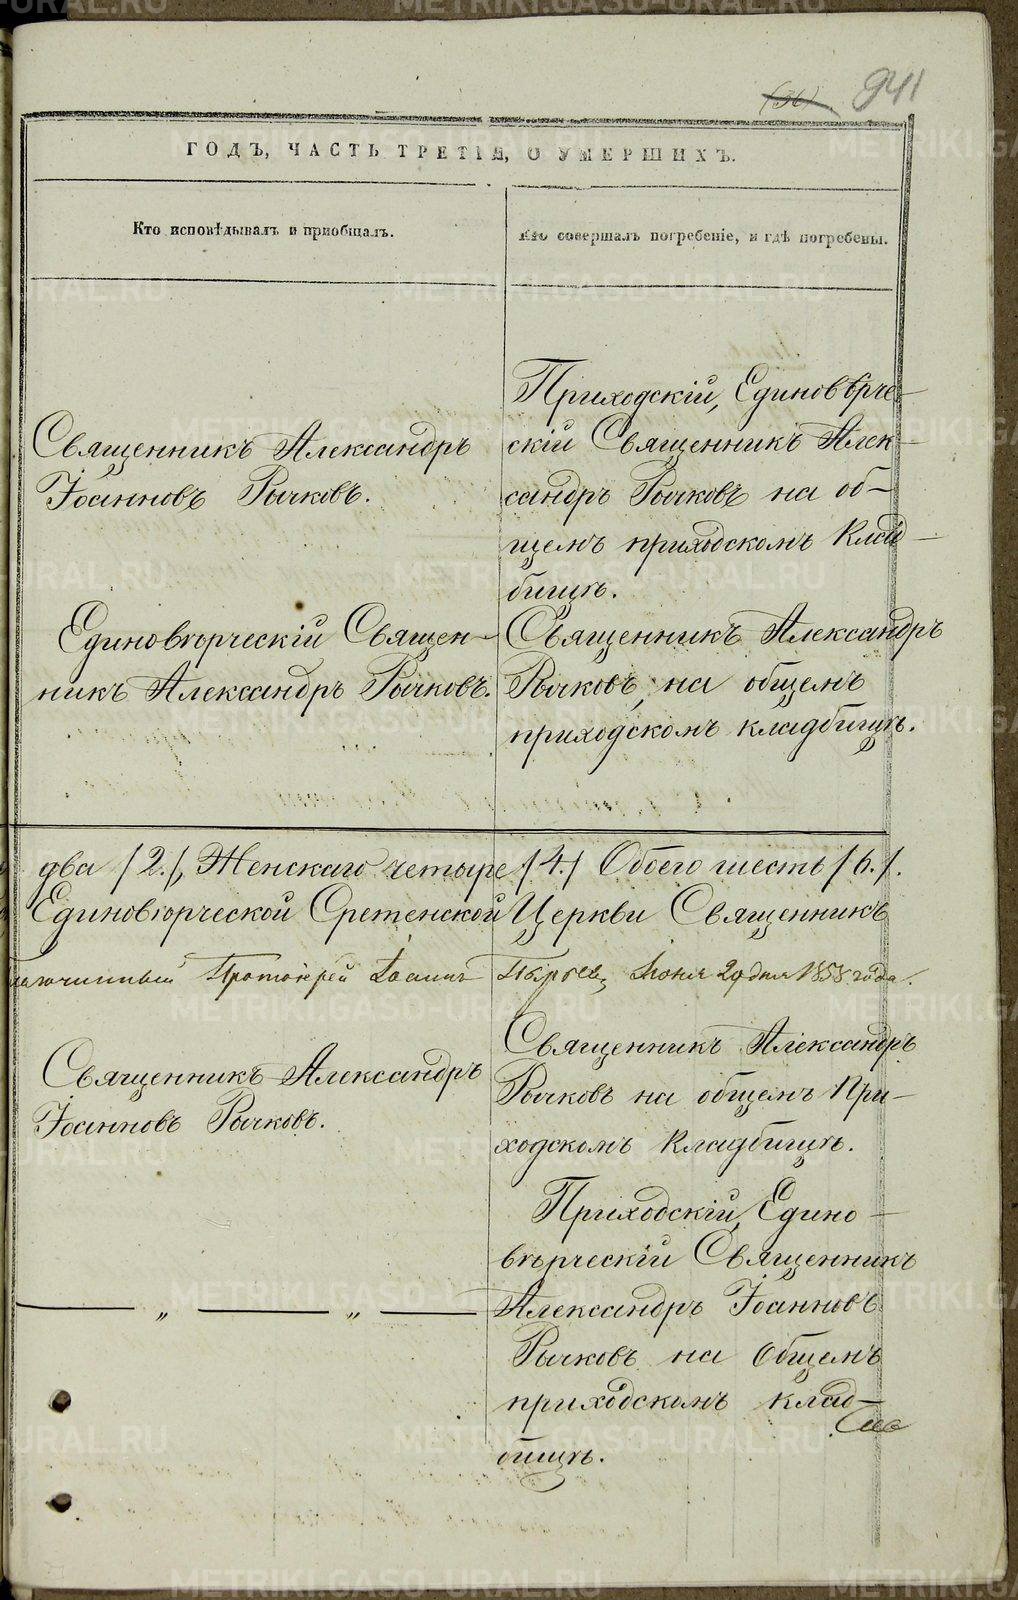 (36) 941
ГОДЪ, ЧАСТЬ ТРЕТІЯ, О УМЕРШИХЪ.
Кто исповѣдывалъ и пріобщалъ.
Кто совершалъ погребеніе, и гдѣ погребены.
Священникъ Александръ
Іоанновъ Рычковъ.
Приходскій, Единовѣрче-
скій Священникъ Алек-
сандръ Рычковъ на об-
щемъ приходскомъ клад-
бищѣ.
Единовѣрческій Священ-
никъ Александръ Рычковъ.
Священникъ Александръ
Рычковъ, на общемъ
приходскомъ кладбищѣ.
два /2./, Женскаго четыре /4./ Обоего шесть /6./.
Единовѣрческой Сретенской Церкви Священникъ
Протоіерей Іоаннъ Іюня 29 дня 1858 года.
Священникъ Александръ
Іоанновъ Рычковъ.
Священникъ Александръ
Рычковъ на общемъ при-
ходскомъ кладбищѣ.
— „ — „ —
Приходскій, Едино-
вѣрческій Священникъ
Александръ Іоанновъ
Рычковъ на общемъ
приходскомъ клад-
бищѣ.
METRIKI.GASO-URAL.RU